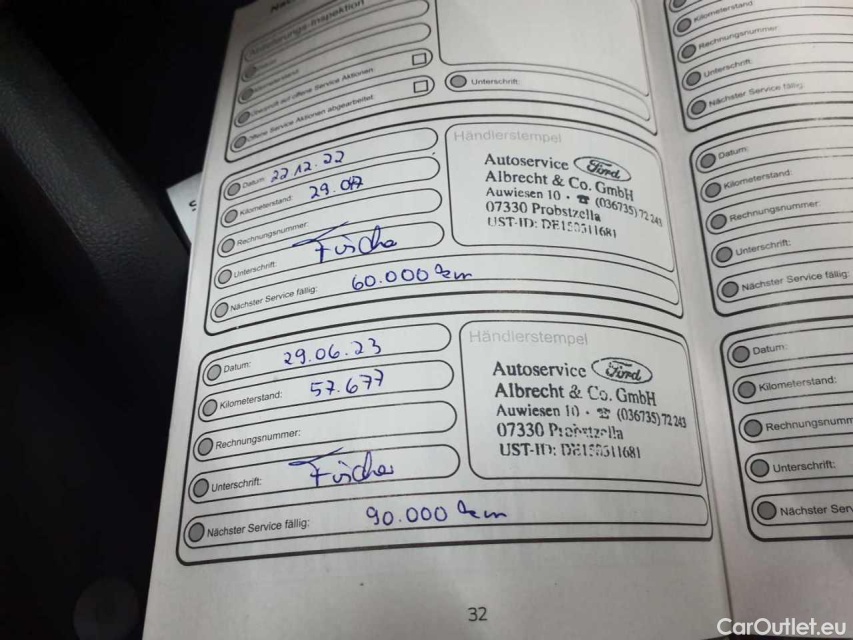 Ablieferungs-Inspektion
Offene Service Aktionen abgearbeitet:
Unterschrift:
Datum: 22.12.22
Kilometerstand: 29.017
Rechnungsnummer:
Unterschrift: Fischer
Nächster Service fällig: 60.000 km
Händlerstempel
Autoservice Ford
Albrecht & Co. GmbH
Auwiesen 10 · ☎ (036735) 72 243
07330 Probstzella
UST-ID: DE150311681
Datum: 29.06.23
Kilometerstand: 57.677
Rechnungsnummer:
Unterschrift: Fischer
Nächster Service fällig: 90.000 km
Händlerstempel
Autoservice Ford
Albrecht & Co. GmbH
Auwiesen 10 · ☎ (036735) 72 243
07330 Probstzella
UST-ID: DE150311681
32
Kilometerstand:
Rechnungsnummer:
Unterschrift:
Nächster Service fällig:
Datum:
Kilometerstand:
Rechnungsnummer:
Unterschrift:
Nächster Service fällig:
Datum:
Kilometerstand:
Rechnungsnumm
Unterschrift:
Nächster Ser
CarOutlet.eu